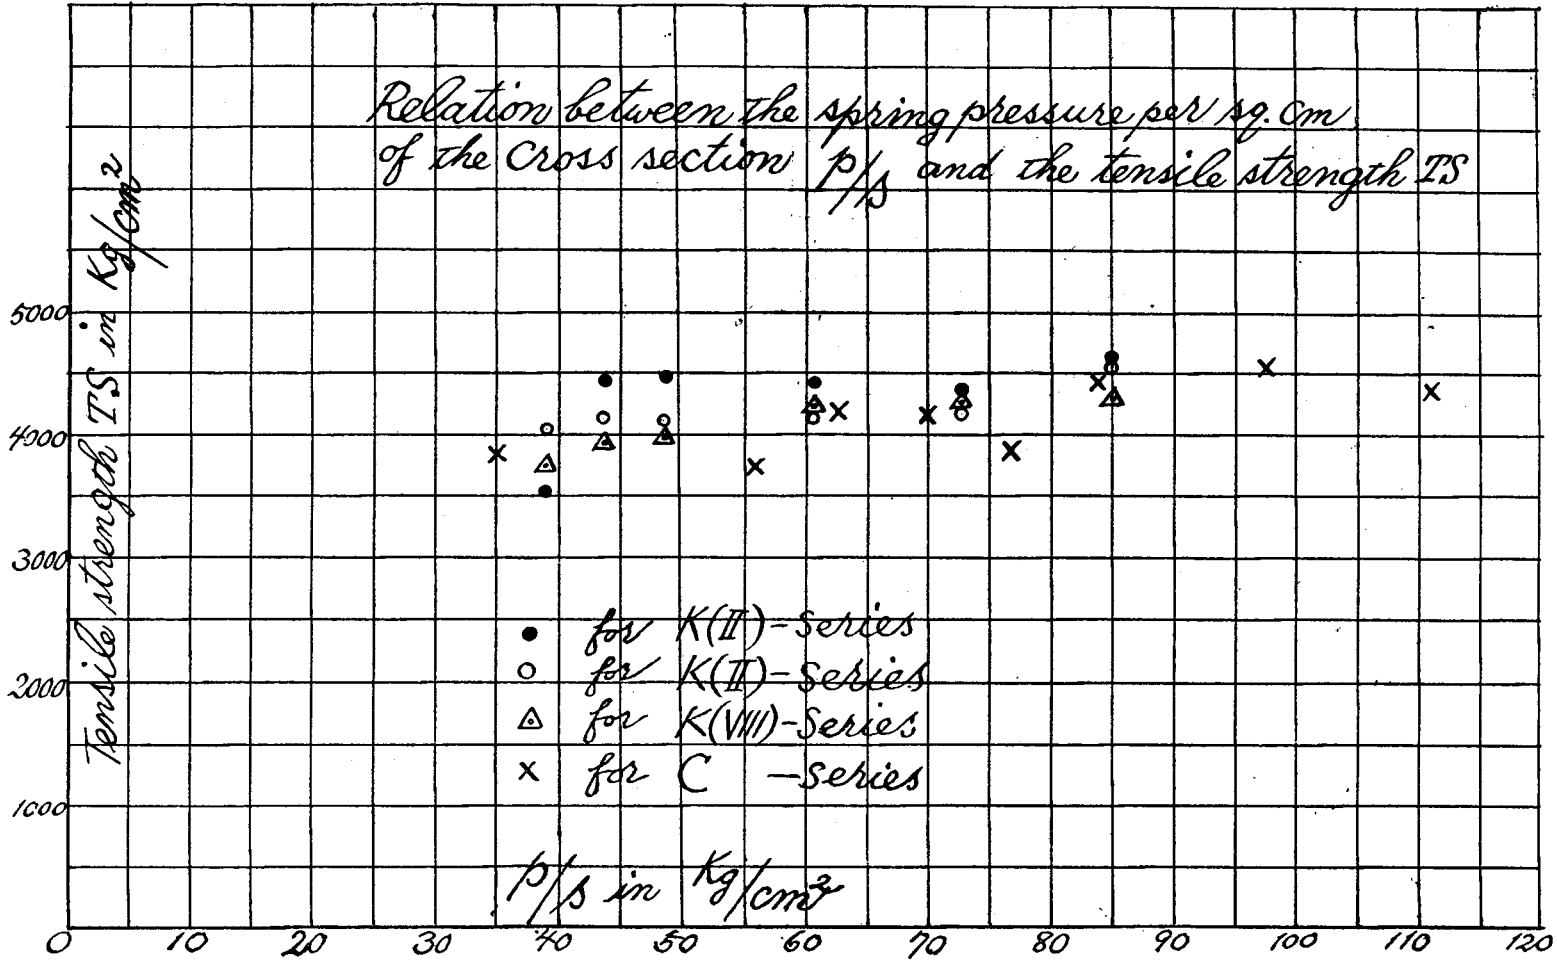 Relation between the spring pressure per sq. cm
of the Cross section p/s and the tensile strength TS
Tensile strength TS in Kg/cm²
5000
4000
3000
2000
1000
● for K(II)-Series
○ for K(II)-Series
△ for K(VIII)-Series
× for C -Series
p/s in Kg/cm²
0 10 20 30 40 50 60 70 80 90 100 110 120